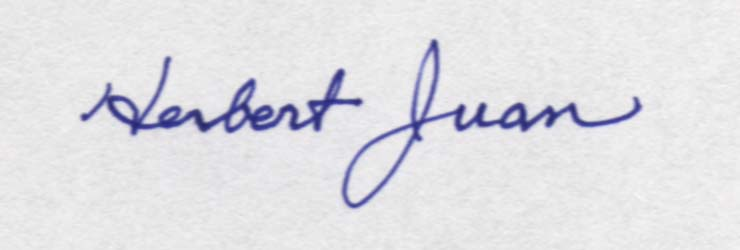 Herbert Juan